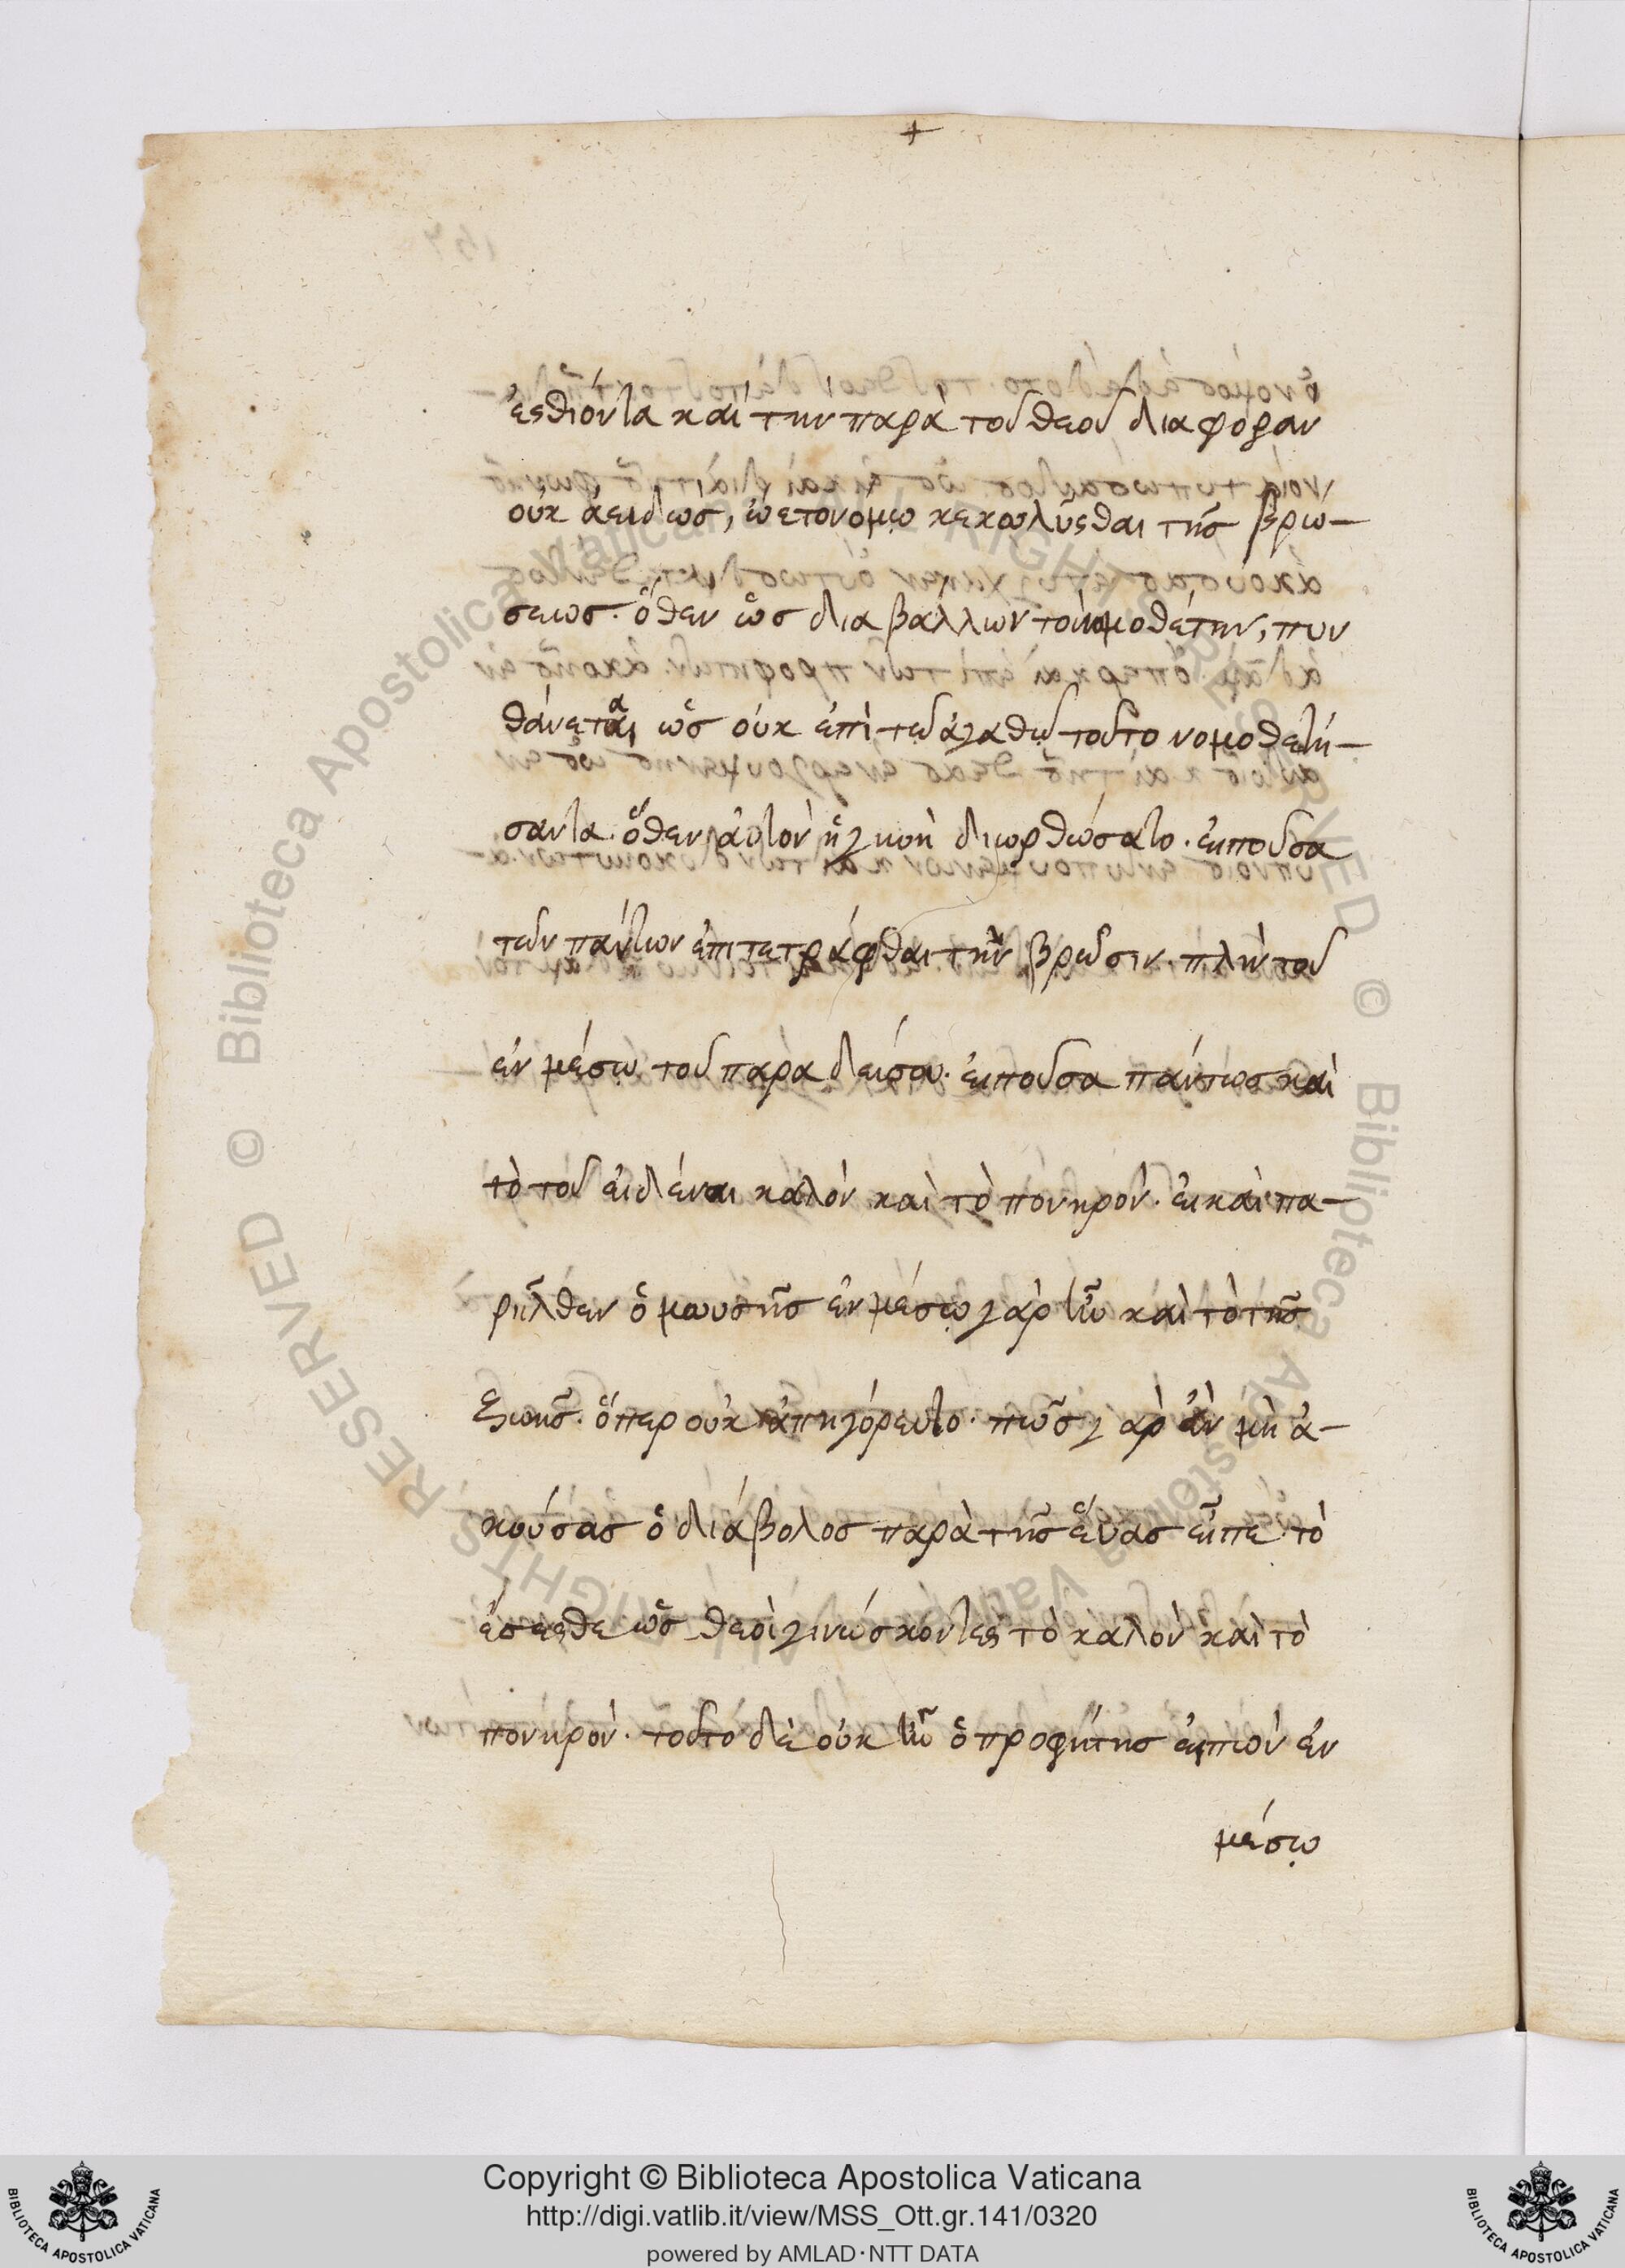 +
ἐσθίοντα καὶ τὴν παρὰ τοῦ θεοῦ διαφορὰν
οὐκ ἀειδὼς, κεκωλῦσθαι τῆς βρώ-
σεως· ὅθεν ὡς διαβάλλων τὸν νομοθέτην, πυν
θάνεται ὡς οὐκ ἐπὶ τῷ ἀγαθῷ τοῦτο νομοθετή-
σαντα· ὅθεν αὐτὸν ἡ γυνὴ διωρθώσατο· εἰποῦσα
τῶν πάντων ἐπιτετράφθαι τὴν βρῶσιν· πλὴν τοῦ
ἐν μέσῳ τοῦ παραδείσου· εἰποῦσα πάντως καὶ
τὸ τοῦ εἰδέναι καλὸν καὶ τὸ πονηρόν· εἰ καὶ πα-
ρῆλθεν ὁ μωυσῆς ἐν μέσῳ γὰρ ἦν καὶ τὸ τῆς
ζωῆς· ὅπερ οὐκ ἀπηγόρευτο· πῶς γὰρ ἂν μὴ ἀ-
κούσας ὁ διάβολος παρὰ τῆς εὔας εἶπε τὸ
ἔσεσθε ὡς θεοὶ γινώσκοντες τὸ καλὸν καὶ τὸ
πονηρόν· τοῦτο δὲ οὐκ ἦν ὁ προφήτης εἰπὼν ἐν
μέσῳ
Copyright © Biblioteca Apostolica Vaticana
http://digi.vatlib.it/view/MSS_Ott.gr.141/0320
powered by AMLAD·NTT DATA
BIBLIOTECA APOSTOLICA VATICANA
BIBLIOTECA APOSTOLICA VATICANA